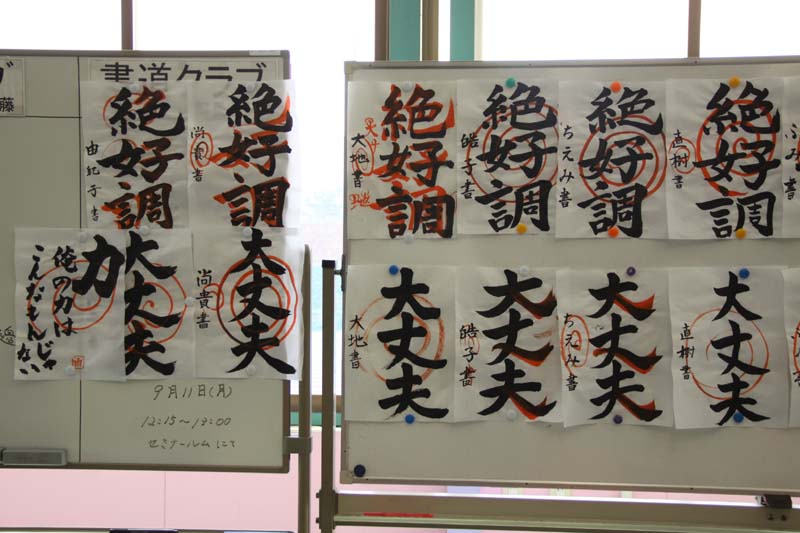 書道クラブ
藤
絶好調
由紀子書
絶好調
尚貴書
俺の力は
こんなもんじゃ
ない
力
大丈夫
大丈夫
尚貴書
9月11日(月)
12:15～13:00
セミナールームにて
絶好調
大地書
絶好調
皓子書
絶好調
ちえみ書
絶好調
直樹書
大丈夫
大地書
大丈夫
皓子書
大丈夫
ちえみ書
大丈夫
直樹書